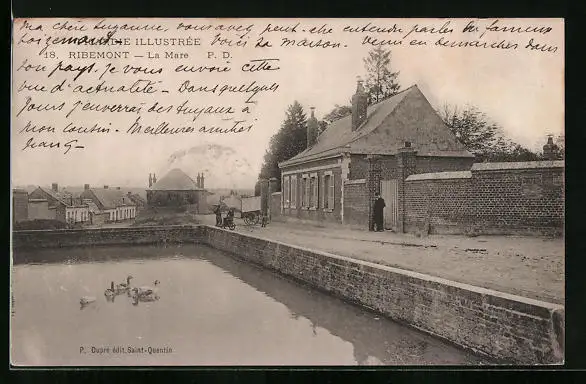 Ma chère Suzanne, vous avez peut-être entendu parler du fameux
PICARDIE ILLUSTRÉE
Voici sa maison. Venu en démarches dans
18. RIBEMONT — La Mare P. D.
son pays, je vous envoie cette
vue d'actualité - Dans quelques
jours j'enverrai des tuyaux à
mon cousin. Meilleures amitiés
P. Dupré édit. Saint-Quentin